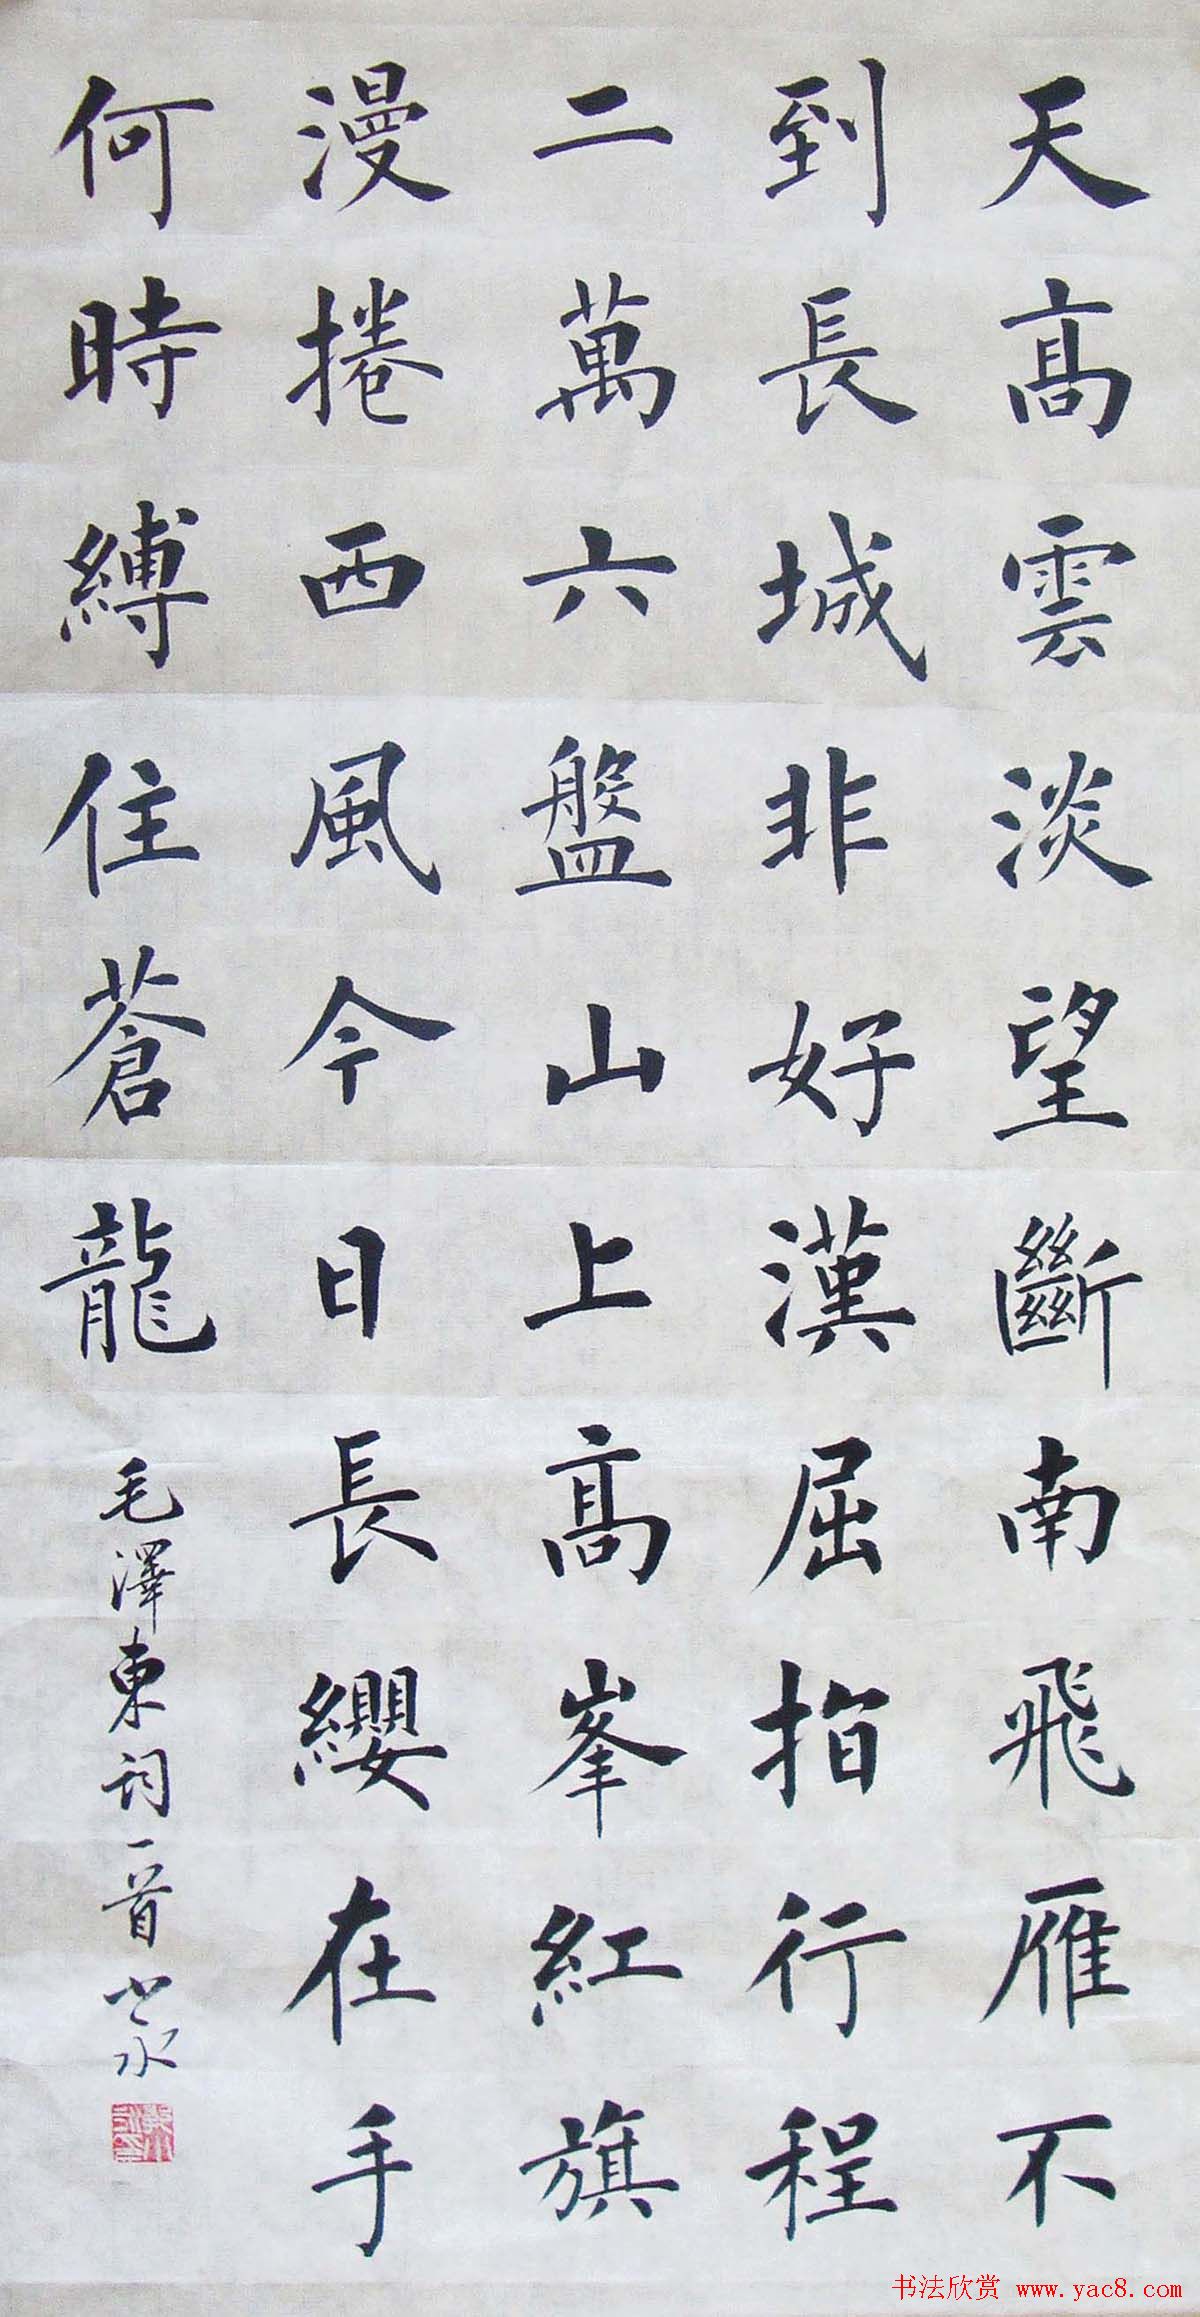 天高雲淡望斷南飛雁不
到長城非好漢屈指行程
二萬六盤山上高峯紅旗
漫捲西風今日長纓在手
何時縛住蒼龍
毛澤東詞一首
书法欣赏 www.yac8.com